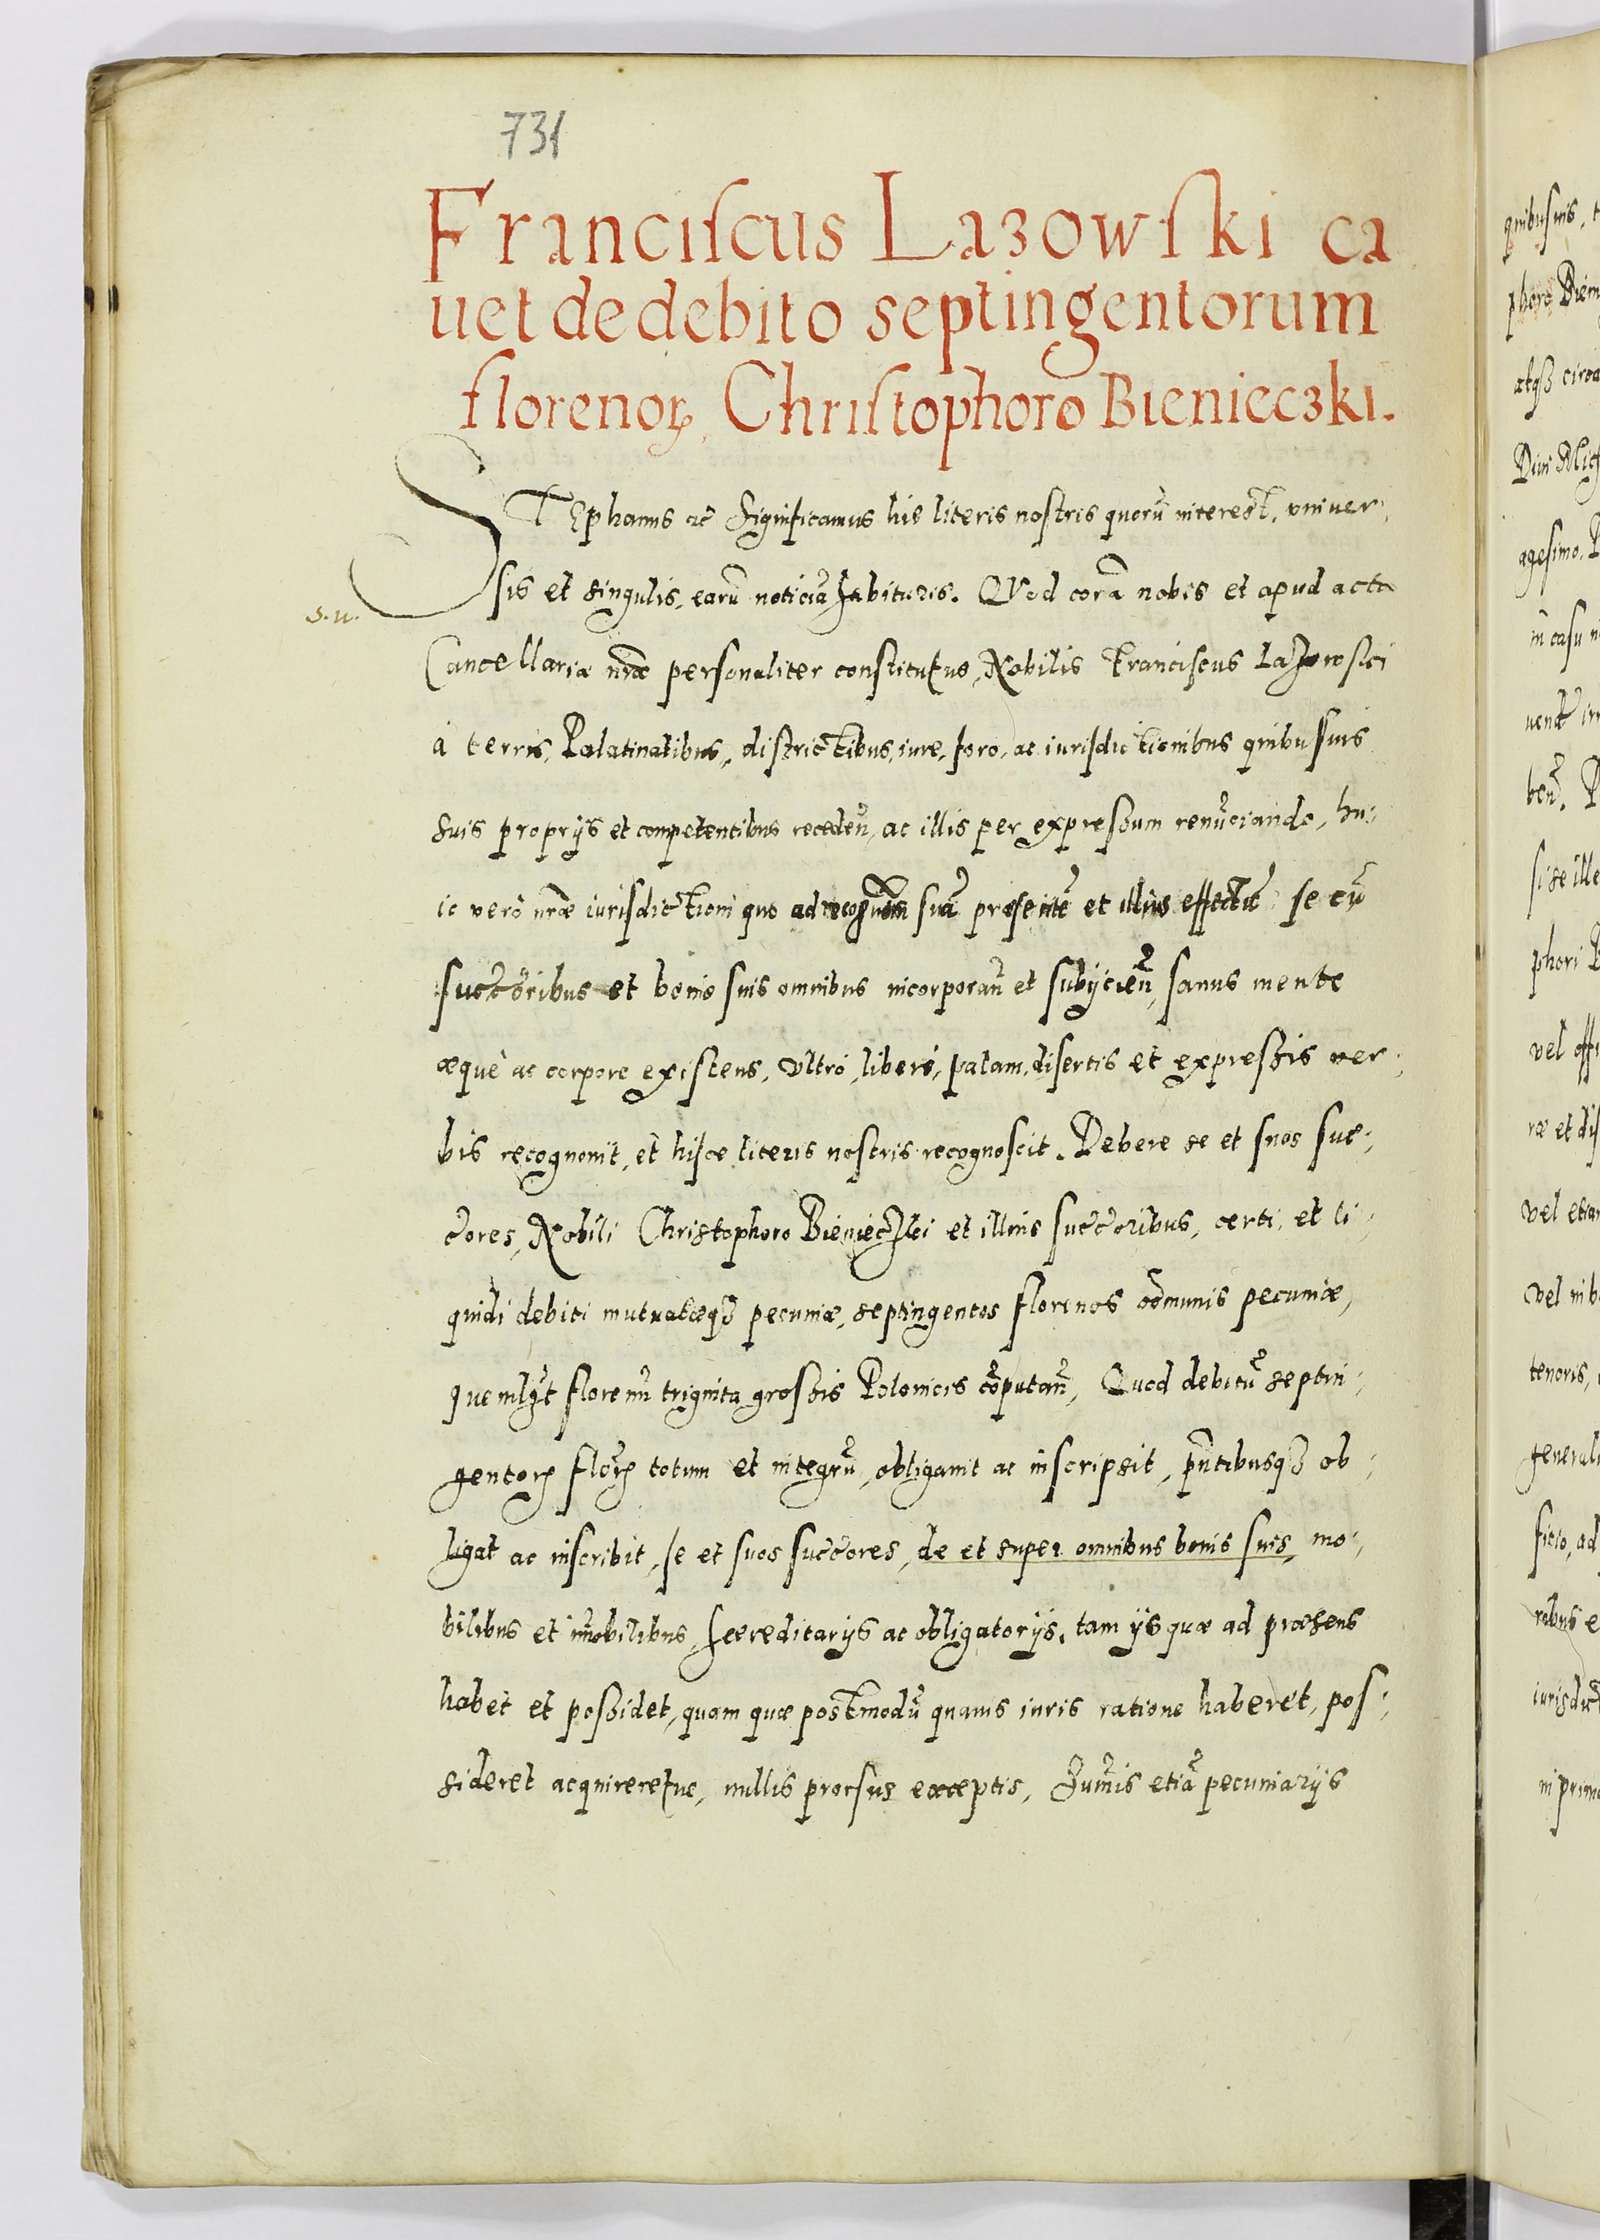 731
Franciscus Lazowski ca
uet de debito septingentorum
florenoꝝ, Christophoro Bienieczki.
STEphanus ac Significamus hie literis nostris quorũ interest, vniuer,
sis et singulis, earũ noticiã habituris. QVod corã nobis et apud acta
S. u.
Cancellariæ nr̃æ personaliter constitutus, Nobilis Franciscus Lazowski
à terris, Palatinatibus, districtibus, iure, foro, ac iurisdictionibus quibusuis
suis proprijs et competentibus recedeñ, ac illis per expressum renũciando, hu,
ic verò nr̃æ iurisdictioni quo ad recognõem suã præsentẽ et illius effectũ se cũ
succ̃oribus et bonis suis omnibus incorporañ et subijcieñ, sanus mente
æquè ac corpore existens, vltrò, liberè, palam, disertis et expressis ver,
bis recognouit, et hisce literis nostris recognoscit. Debere se et suos suc,
c̃ores, Nobili Christophoro Bienieczki et illius succ̃oribus, certi et li,
quidi debiti mutuatæqꝫ pecuniæ, septingentos florenos cõmunis pecuniæ,
quemlꝫt florenũ triginta grossis Polonicis cõputañ, Quod debitũ septin,
gentoꝝ floꝝ totum et integrũ, obligauit ac inscripsit, p̃ntibusqꝫ ob,
ligat ac inscribit, se et suos succ̃ores, de et super omnibus bonis suis, mo,
bilibus et im̃obilibus, hæreditarijs ac obligatorijs, tam ijs quæ ad præsens
habet et possidet, quam quæ postmodũ quauis iuris ratione haberet, pos,
sideret acquireretue, nullis prorsus exceptis, Sum̃is etiã pecuniarijs